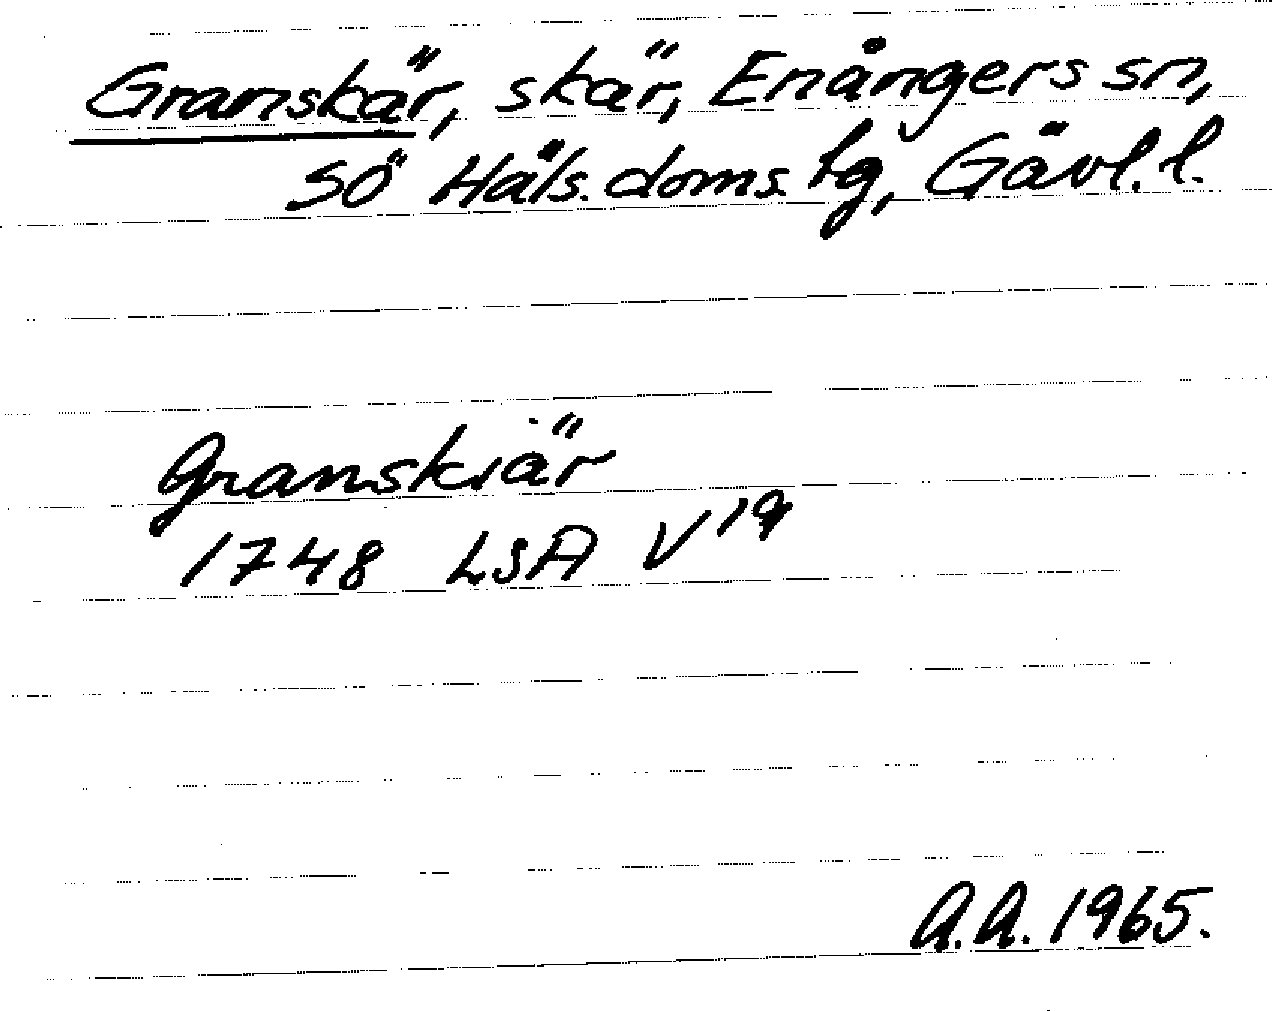 Granskär, skär, Enångers sn,
SÖ Häls. doms. hg, Gävl. l.
Granskiär
1748 LSA V 19
A.A. 1965.